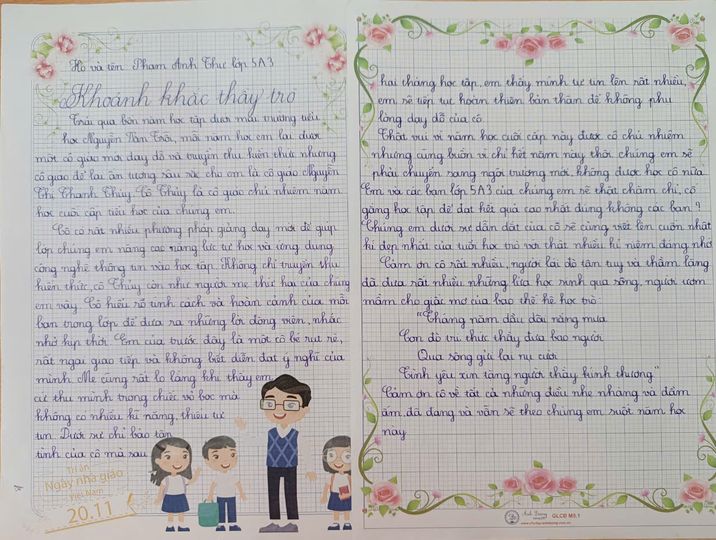 Họ và tên Phạm Anh Thư lớp 5A3
Khoảnh khắc thầy trò
Trải qua bốn năm học tập dưới mái trường tiểu
học Nguyễn Văn Trỗi, mỗi năm học em lại được
một cô giáo mới dạy dỗ và truyền thụ kiến thức nhưng
cô giáo để lại ấn tượng sâu sắc cho em là cô giáo Nguyễn
Thị Thanh Thủy. Cô Thủy là cô giáo chủ nhiệm năm
học cuối cấp tiểu học của chúng em.
Cô có rất nhiều phương pháp giảng dạy mới để giúp
lớp chúng em nâng cao năng lực tự học và ứng dụng
công nghệ thông tin vào học tập. Không chỉ truyền thụ
kiến thức, cô Thủy còn như người mẹ thứ hai của chúng
em vậy. Cô hiểu rõ tính cách và hoàn cảnh của mỗi
bạn trong lớp để đưa ra những lời động viên, nhắc
nhở kịp thời. Em của trước đây là một cô bé rụt rè,
rất ngại giao tiếp và không biết diễn đạt ý nghĩ của
mình. Mẹ cũng rất lo lắng khi thấy em
cứ thu mình trong chiếc vỏ bọc mà
không có nhiều kĩ năng, thiếu tự
tin. Dưới sự chỉ bảo tận
tình của cô mà sau
Tri ân
Ngày nhà giáo
Việt Nam
20.11
hai tháng học tập, em thấy mình tự tin lên rất nhiều,
em sẽ tiếp tục hoàn thiện bản thân để không phụ
lòng dạy dỗ của cô.
Thật vui vì năm học cuối cấp này được cô chủ nhiệm
nhưng cũng buồn vì chỉ hết năm này thôi chúng em sẽ
phải chuyển sang ngôi trường mới, không được học cô nữa.
Em và các bạn lớp 5A3 của chúng em sẽ thật chăm chỉ, cố
gắng học tập để đạt kết quả cao nhất đúng không các bạn?
Chúng em dưới sự dẫn dắt của cô sẽ cùng viết lên cuốn nhật
kí đẹp nhất của tuổi học trò với thật nhiều kỉ niệm đáng nhớ.
Cảm ơn cô rất nhiều, người lái đò tận tụy và thầm lặng
đã đưa rất nhiều những lứa học sinh qua sông, người ươm
mầm cho giấc mơ của bao thế hệ học trò:
"Tháng năm dầu dãi nắng mưa
Con đò tri thức thầy đưa bao người
Qua sông gửi lại nụ cười
Tình yêu xin tặng người thầy kính thương."
Cảm ơn cô về tất cả những điều nhẹ nhàng và đầm
ấm, đã đang và vẫn sẽ theo chúng em suốt năm học
này.
Ánh Dương
GLCĐ MS.1